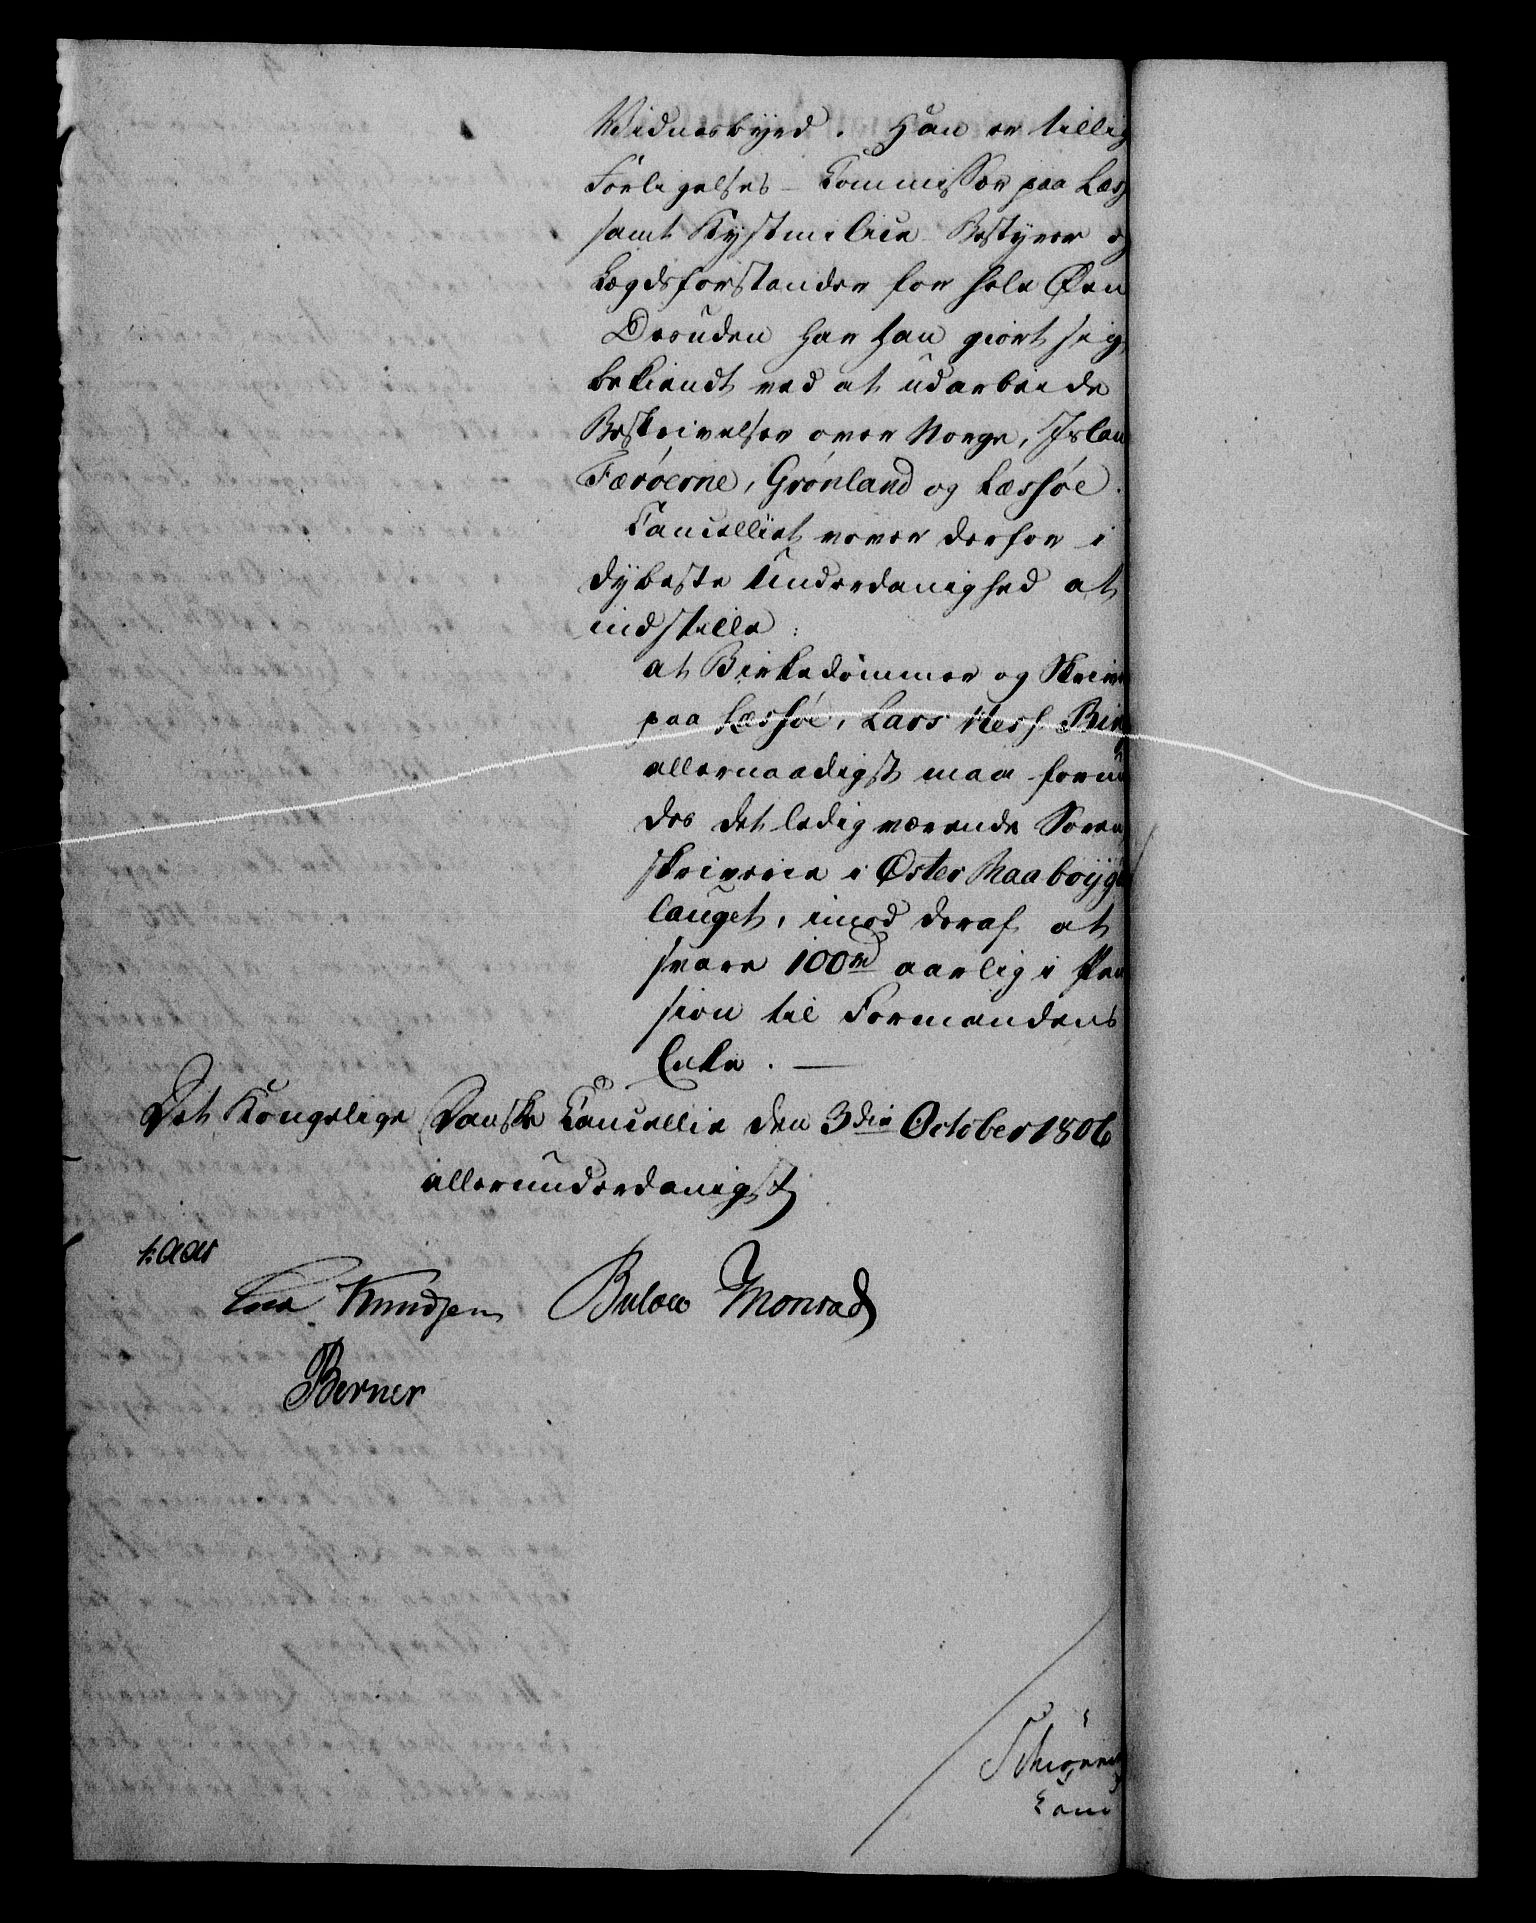 Vidnesbyrd. Han er tillig
Forligelses-Commissær paa Læs
samt Kystmilice Bestyrer og
Lægdsforstander for hele Øen
Desuden har han giort sig
bekiendt ved at udarbeide
Beskrivelser over Norge, Islan
Færöerne, Grönland og Læssöe.
Cancelliet vover derfor i
dybeste Underdanighed at
indstille:
at Birkedömmer og Skriv
paa Læssöe, Lars Hess Bin
allernaadigst maa forun
des det ledigværende Soren
skriverie i Øster Raaböyge
lauget, imod deraf at
svare 100 rd aarlig i Pen
sion til Formandens
Enke. —
Det Kongelige Danske Cancellie den 3die October 1806
allerunderdanigst
Kaas
Knudsen Bülow Monrad
Berner